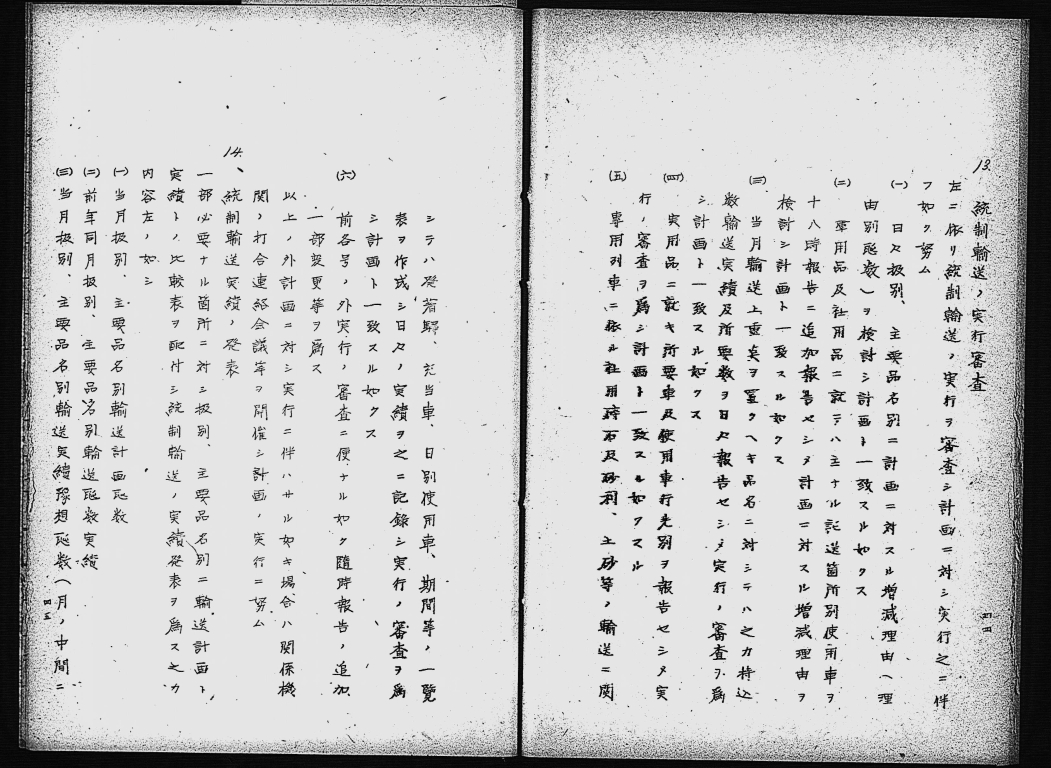 13.
統制輸送ノ実行審査
左ニ依リ統制輸送ノ実行ヲ審査シ計画ニ対シ実行之ニ伴
フ如ク努ム
(一) 日々扱別、主要品名別ニ計画ニ対スル増減理由(理
由別瓲数)ヲ検討シ計画ト一致スル如クス
(二) 軍用品及社用品ニ就テハ主ナル記送箇所別使用車ヲ
十八時報告ニ追加報告セシメ計画ニ対スル増減理由ヲ
検討シ計画ト一致スル如クス
(三) 当月輸送上重美ヲ置クヘキ品名ニ対シテハ之カ持込
数輸送実績及所要数ヲ日々報告セシメ実行ノ審査ヲ為
シ計画ト一致スル如クス
(四) 実用品ニ就キ所要車及使用車行先別ヲ報告セシメ実
行ノ審査ヲ為シ計画ト一致スル如クスル
(五) 専用列車ニ依ル社用砕石及砂利、土砂等ノ輸送ニ関
シテハ発着駅、充当車、日別使用車、期間等ノ一覧
表ヲ作成シ日々ノ実績ヲ之ニ記録シ実行ノ審査ヲ為
シ計画ト一致スル如クス
(六) 前各号ノ外実行ノ審査ニ便ナル如ク随時報告ノ追加
一部変更等ヲ為ス
以上ノ外計画ニ対シ実行ニ伴ハサル如キ場合ハ関係機
関ノ打合連絡会議等ヲ開催シ計画ノ実行ニ努ム
14.
統制輸送実績ノ発表
一部必要ナル箇所ニ対シ扱別、主要品名別ニ輸送計画ト
実績トノ比較表ヲ配付シ統制輸送ノ実績発表ヲ為ス之カ
内容左ノ如シ
(一) 当月扱別、主要品名別輸送計画瓲数
(二) 前年同月扱別、主要品名別輸送瓲数実績
(三) 当月扱別、主要品名別輸送実績予想瓲数(月ノ中間ニ